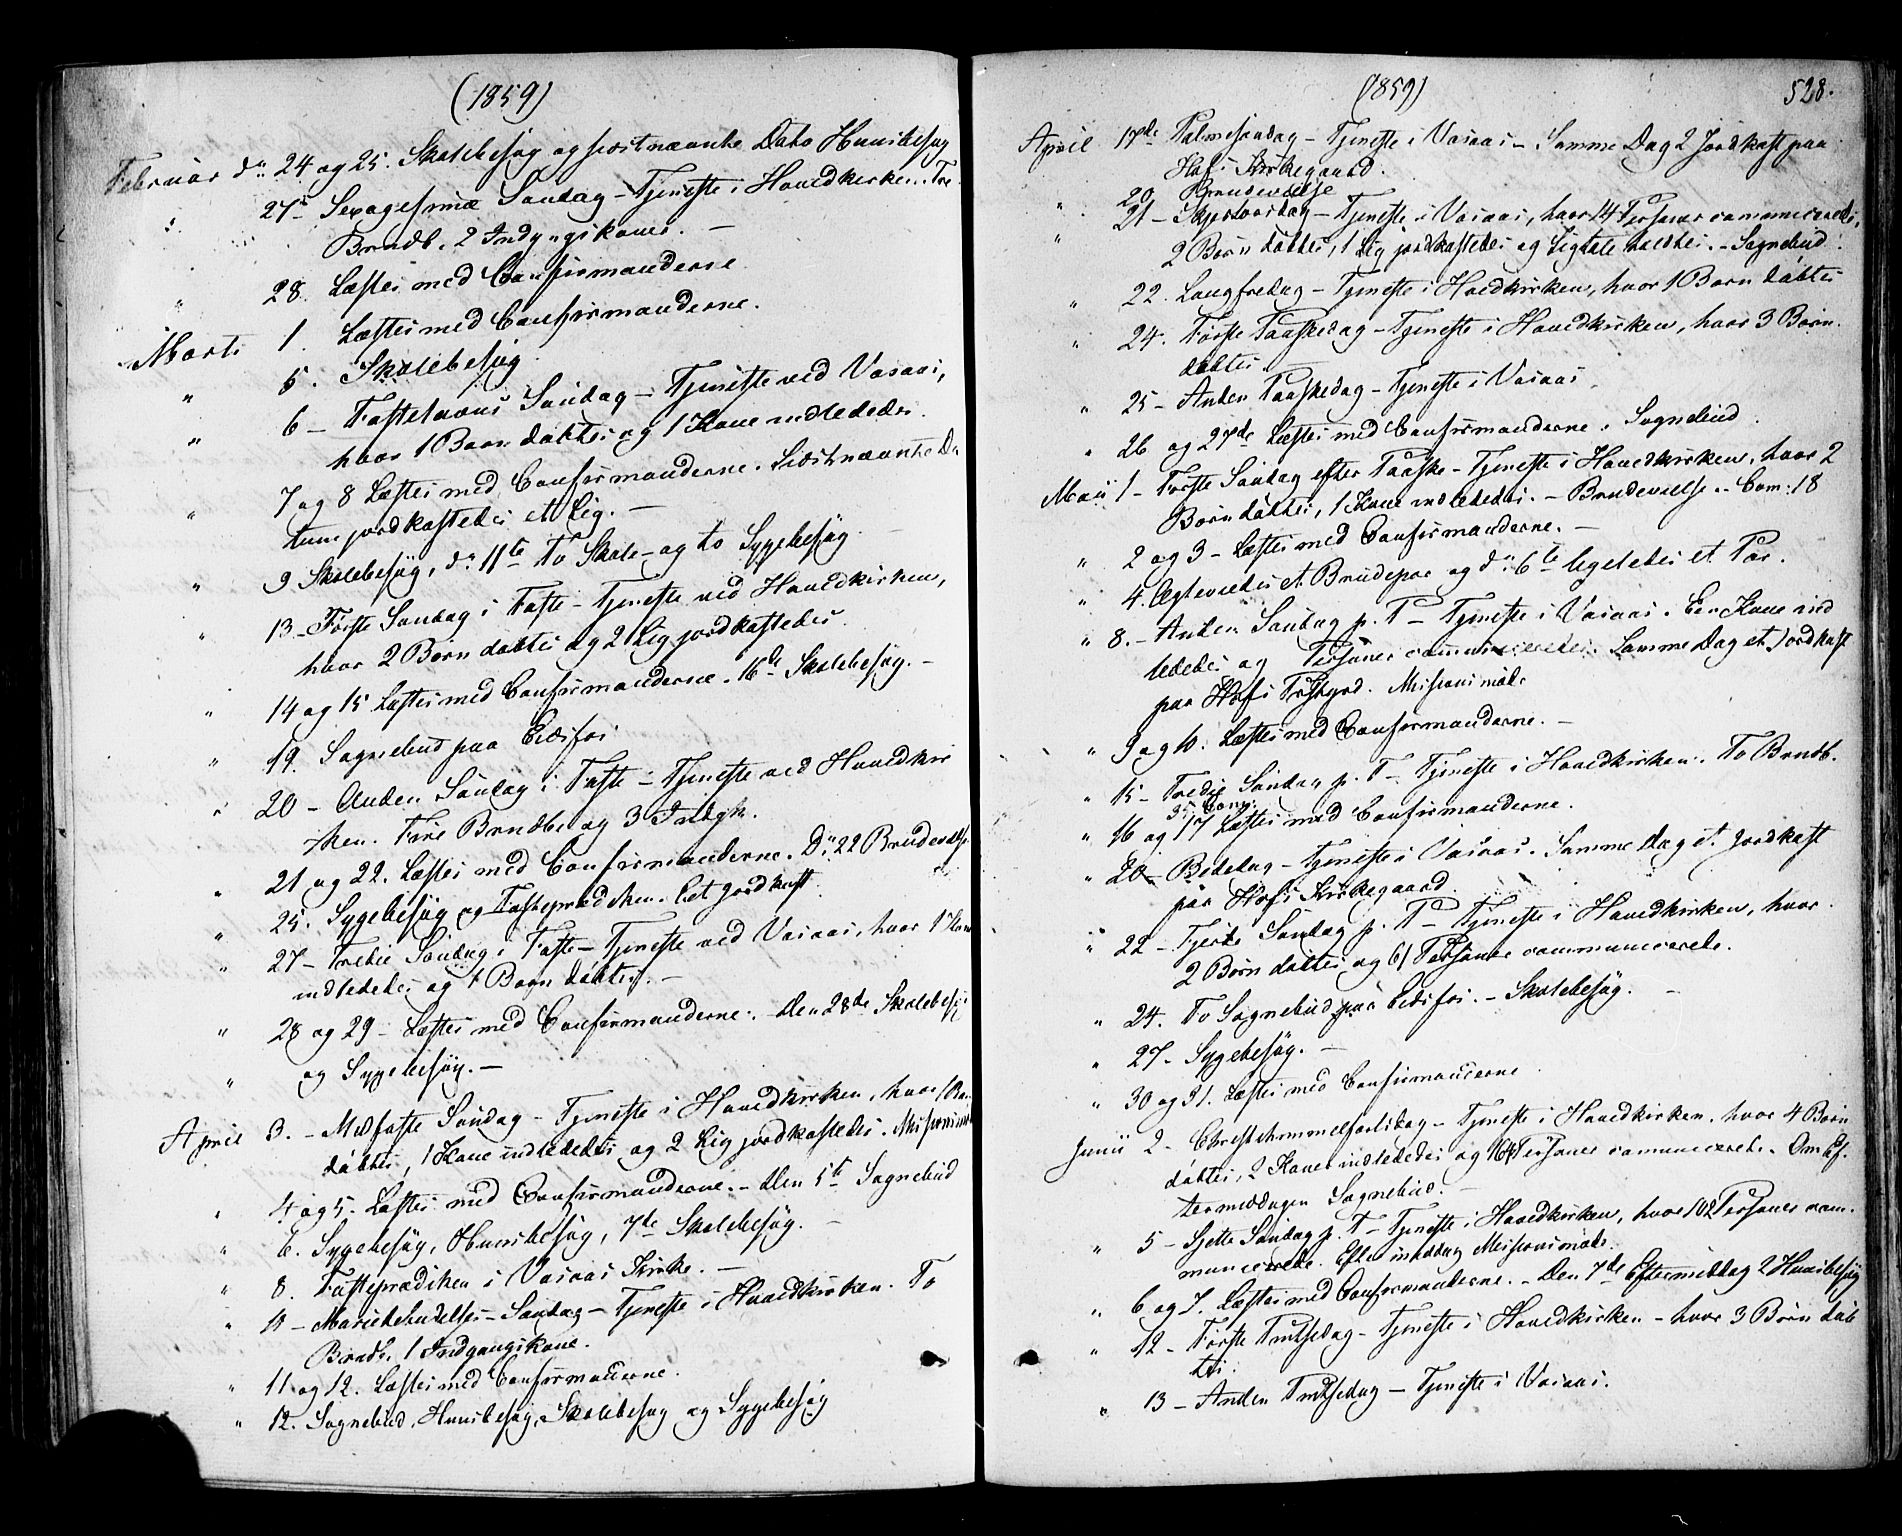 (1859)
Februar d: 24 og 25. Skolebesøg og sidstnævnte Dato Huusbesøg
" 27 - Sexagesimæ Søndag - Tjeneste i Hovedkirken. Tre
Brudb. 2 Indgangskoner. -
" 28. Læstes med Confirmanderne
Marts 1. Læstes med Confirmanderne.
" 5. Skolebesøg.
" 6 - Fastelavns Søndag - Tjeneste ved Vasaas,
hvor 1 Barn døbtes og 1 Kone indlededes.
" 7 og 8 Læstes med Confirmanderne. Sidstnævnte Da
tum jordkastedes et Lig. -
" 9 Skolebesøg, d: 11te To Skole- og to Sygebesøg
" 13 - Første Søndag i Faste - Tjeneste ved Hovedkirken,
hvor 2 Børn døbtes og 2 Lig jordkastedes.
" 14 og 15 Læstes med Confirmanderne. 16de Skolebesøg. -
" 19. Sognebud paa Eidsfos
" 20 - Anden Søndag i Faste - Tjeneste ved Hovedkir
ken. Fire Brudb. og 3 Indgk.
" 21 og 22. Læstes med Confirmanderne. D: 22 Brudevielse
" 25. Sygebesøg og Fasteprædiken. Eet Jordkast.
" 27 - Tredie Søndag i Faste - Tjeneste ved Vasaas, hvor 1 Kone
indlededes og 1 Barn døbtes. -
" 28 og 29 - Læstes med Confirmanderne. - Den 28de Skolebesøg
" og Sygebesøg. -
April 3. - Midfaste Søndag - Tjeneste i Hovedkirken, hvor 1 Barn
døbtes, 1 Kone indlededes og 2 Lig jordkastedes. Missionsmøde
" 4 og 5. Læstes med Confirmanderne. - Den 5te Sognebud
" 6. Sygebesøg, Huusbesøg, 7de Skolebesøg. -
" 8. Fasteprædiken i Vasaas Kirke. -
" 10 - Mariæ Bebudelses-Søndag - Tjeneste i Hovedkirken. To
Brudb. 1 Indgangskone.
" 11 og 12. Læstes med Confirmanderne.
" 12. Sognebud, Huusbesøg, Skolebesøg og Sygebesøg
(1859) 528.
April 17de Palmesøndag - Tjeneste i Vasaas - Samme Dag 2 Jordkast paa
Hofs Kirkegaard.
" 20 Brudevielse
" 21 - Skjertorsdag - Tjeneste i Vasaas, hvor 14 Personer communicerede,
2 Børn døbtes, 1 Lig jordkastedes og Ligtale holdtes. - Sognebud.
" 22. Langfredag - Tjeneste i Hovedkirken, hvor 1 Barn døbtes
" 24. Første Paaskedag - Tjeneste i Hovedkirken, hvor 3 Børn
døbtes
" 25 - Anden Paaskedag - Tjeneste i Vasaas.
" 26 og 27de Læstes med Confirmanderne. Sognebud.
Maii 1 - Første Søndag efter Paaske - Tjeneste i Hovedkirken, hvor 2
Børn døbtes, 1 Kone indlededes. - Brudevielse. Com: 18
" 2 og 3 - Læstes med Confirmanderne. -
" 4. Ægteviedes et Brudepar og d: 6te ligeledes et Par.
" 8. - Anden Søndag p. P - Tjeneste i Vasaas. Een Kone ind
lededes og Personer communicerede. Samme Dag et Jordkast
paa Hofs Kirkegrd. Missionsmøde
" 9 og 10. Læstes med Confirmanderne. -
" 15 - Tredie Søndag p. P - Tjeneste i Hovedkirken. To Brudb.
35 Com:
" 16 og 17 Læstes med Confirmanderne.
" 20 - Bededag - Tjeneste i Vasaas. Samme Dag et Jordkast
paa Hofs Kirkegaard
" 22 - Fjerde Søndag p. P - Tjeneste i Hovedkirken, hvor
2 Børn døbtes og 61 Personer communicerede.
" 24. To Sognebud paa Eidsfos. - Skolebesøg. -
" 27 - Sygebesøg. -
" 30 og 31. Læstes med Confirmanderne
Junii 2 - Christi Himmelfartsdag - Tjeneste i Hovedkirken, hvor 4 Børn
døbtes, 2 Koner indlededes og 164 Personer communicerede. Om Ef-
termiddagen Sognebud. -
" 5 - Sjette Søndag p. P - Tjeneste i Hovedkirken, hvor 102 Personer com-
municerede. Eftermiddag Missionsmøde.
" 6 og 7. Læstes med Confirmanderne. - Den 7de Eftermiddag 2 Huusbesøg
" 12 - Første Pintsedag - Tjeneste i Hovedkirken - hvor 3 Børn døb
tes.
" 13 - Anden Pintsedag - Tjeneste i Vasaas.